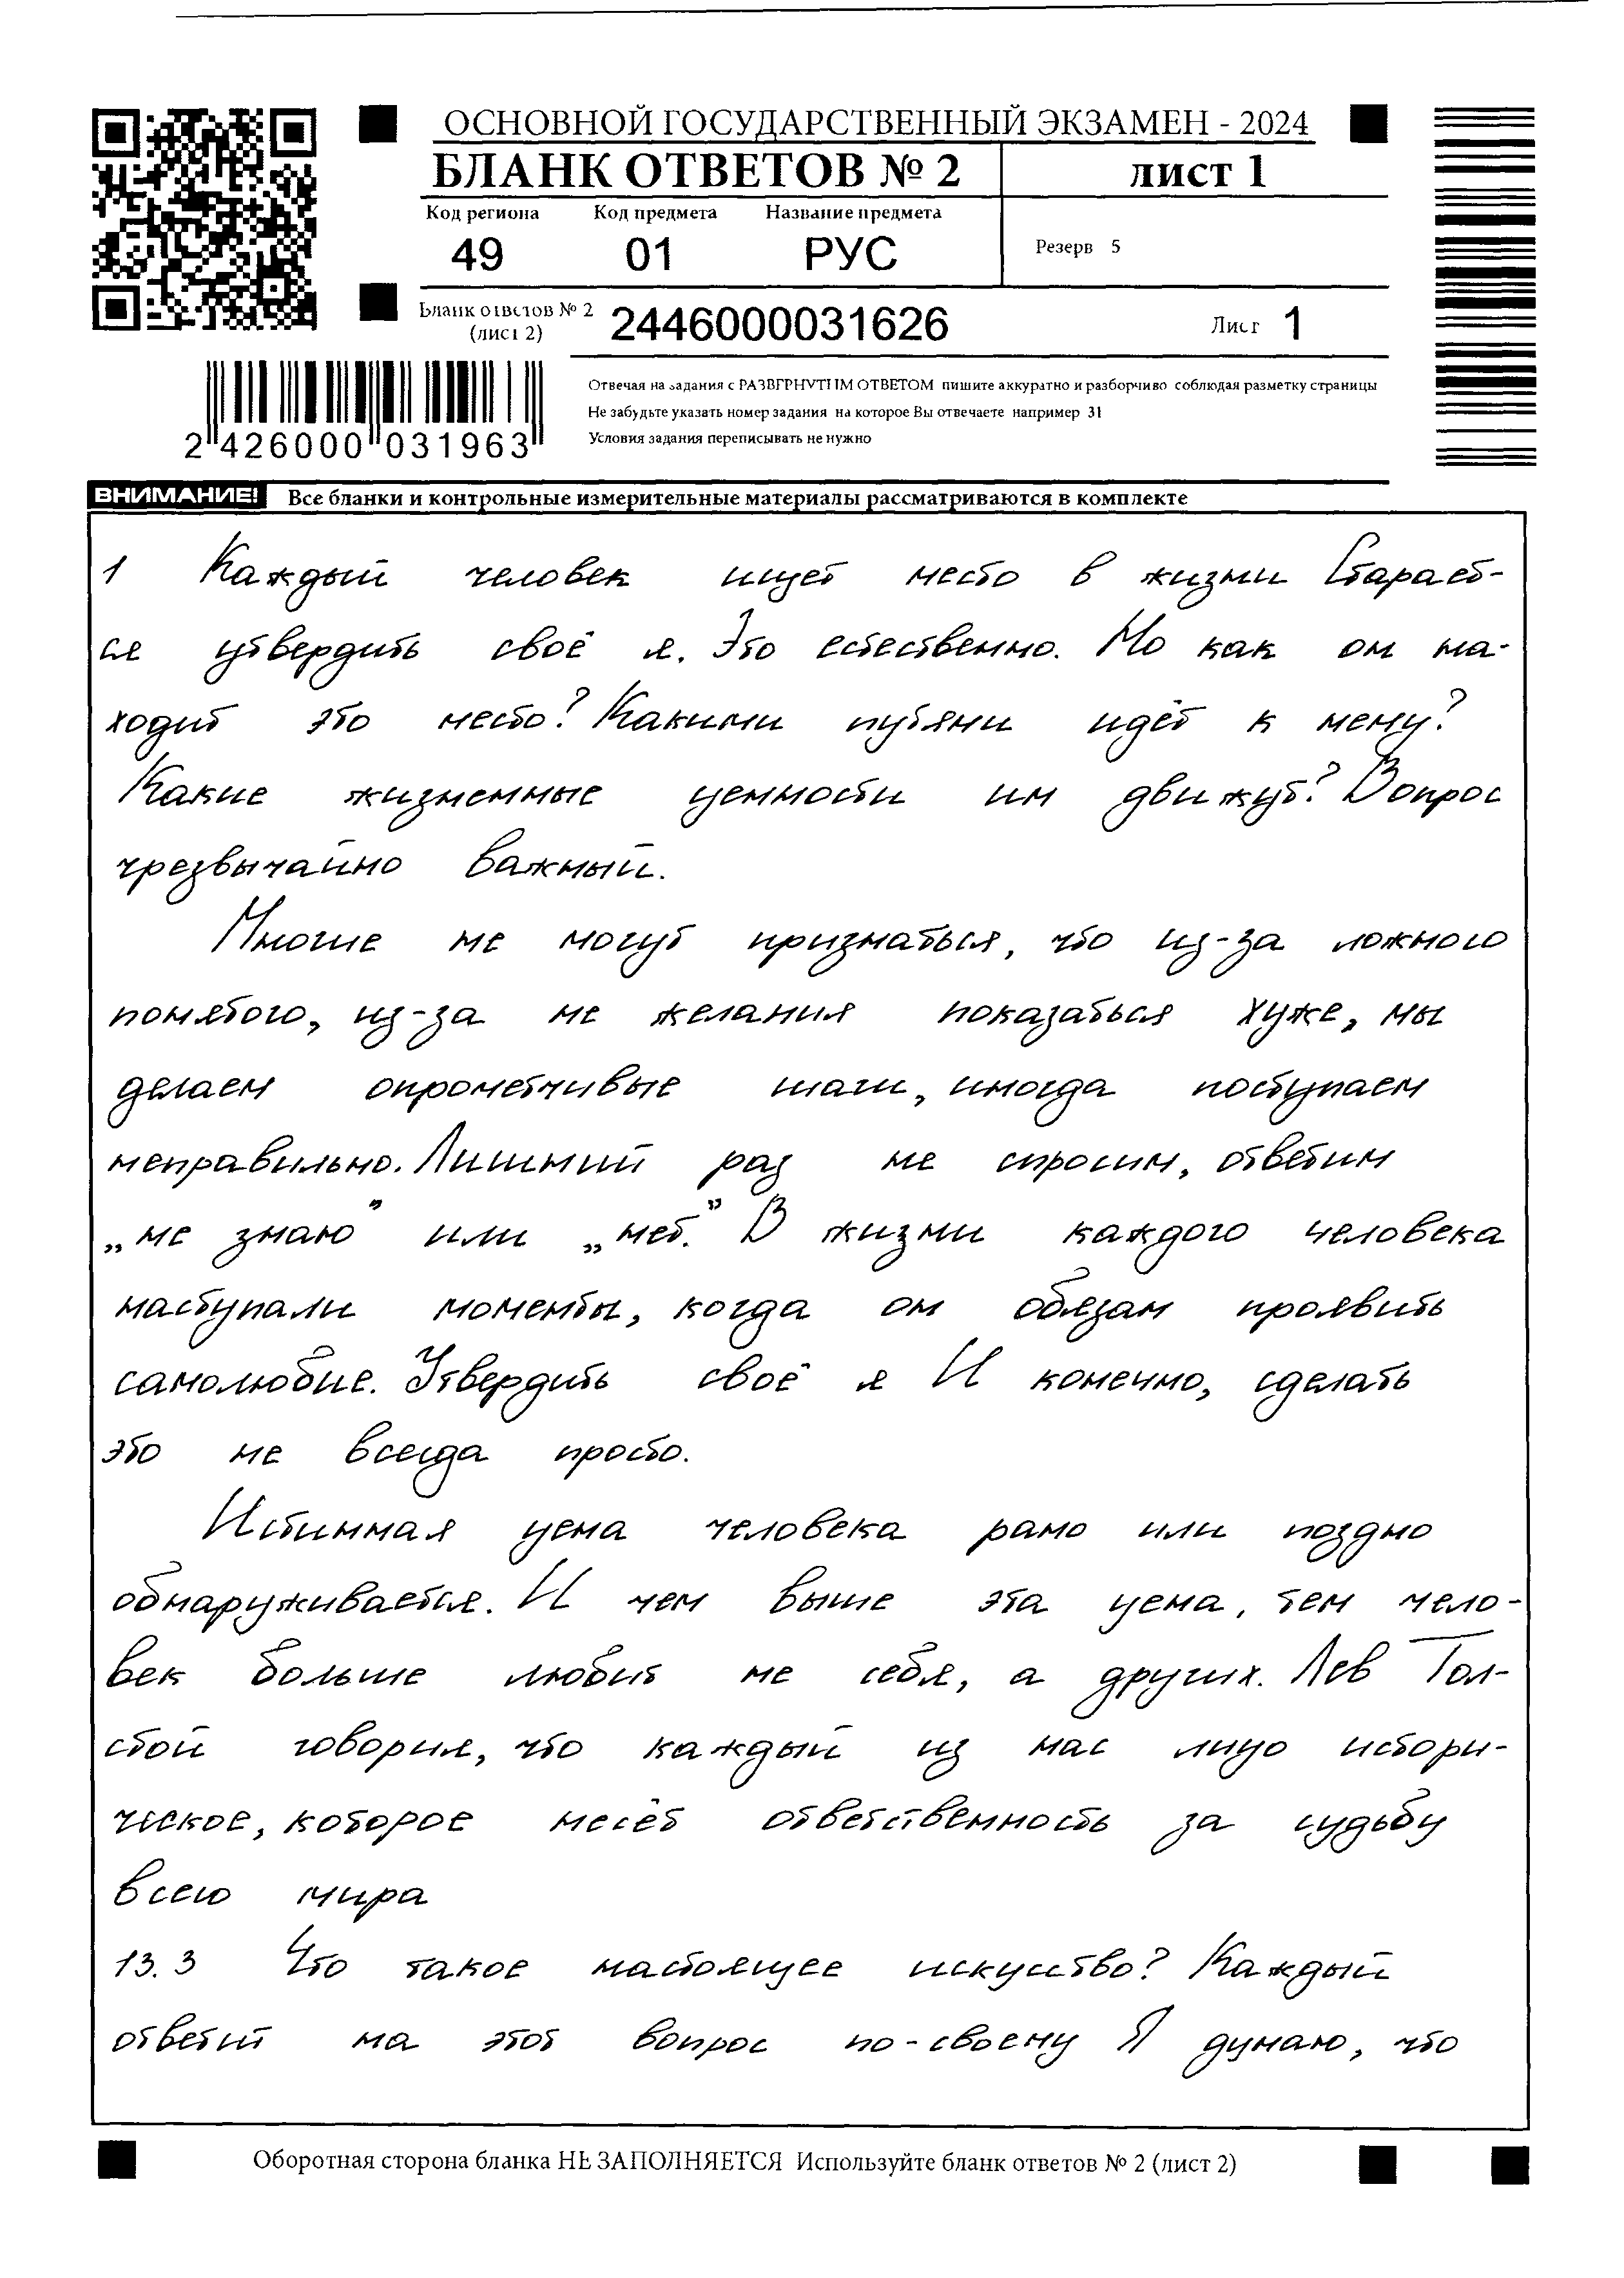 ОСНОВНОЙ ГОСУДАРСТВЕННЫЙ ЭКЗАМЕН - 2024
БЛАНК ОТВЕТОВ № 2 лист 1
Код региона Код предмета Название предмета
49 01 РУС Резерв 5
Бланк ответов № 2
(лист 2) 2446000031626 Лист 1
Отвечая на задания с РАЗВЕРНУТЫМ ОТВЕТОМ пишите аккуратно и разборчиво соблюдая разметку страницы
Не забудьте указать номер задания на которое Вы отвечаете например 31
Условия задания переписывать не нужно
2 426000 031963
ВНИМАНИЕ! Все бланки и контрольные измерительные материалы рассматриваются в комплекте
1 Каждый человек ищет место в жизни Старает-
ся утвердить своё я. Это естественно. Но как он на-
ходит это место? Какими путями идёт к нему?
Какие жизненные ценности им движут? Вопрос
чрезвычайно важный.
Многие не могут признаться, что из-за ложного
понятого, из-за не желания показаться хуже, мы
делаем опрометчивые шаги, иногда поступаем
неправильно. Лишний раз не спросим, ответим
„не знаю" или „нет." В жизни каждого человека
наступали моменты, когда он обязан проявить
самолюбие. Утвердить своё я И конечно, сделать
это не всегда просто.
Истинная цена человека рано или поздно
обнаруживается. И чем выше эта цена, тем чело-
век больше любит не себя, а других. Лев Тол-
стой говорил, что каждый из нас лицо истори-
ческое, которое несёт ответственность за судьбу
всего мира
13. 3 Что такое настоящее искусство? Каждый
ответит на этот вопрос по-своему Я думаю, что
Оборотная сторона бланка НЕ ЗАПОЛНЯЕТСЯ Используйте бланк ответов № 2 (лист 2)